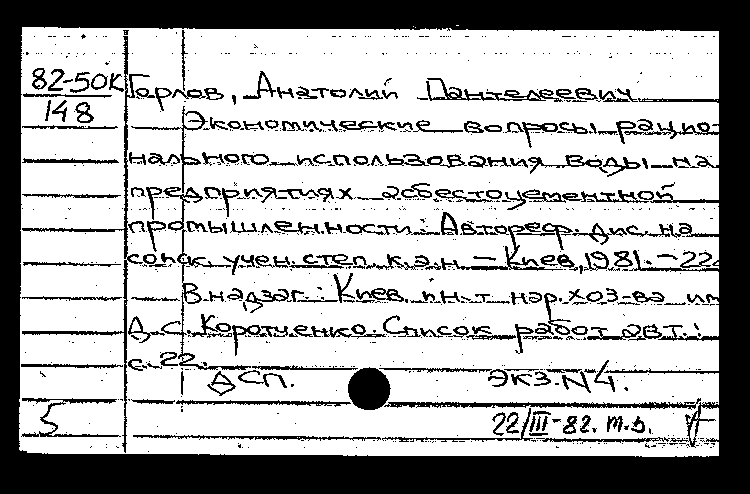 82-50К Горлов, Анатолий Пантелеевич
148
Экономические вопросы рацио-
нального использования воды на
предприятиях асбестоцементной
промышленности: Автореф. дис. на
соиск. учен. степ. к.э.н. — Киев, 1981. — 22с
В надзаг.: Киев. ин-т нар. хоз-ва им
Д.С. Коротченко. Список работ авт.:
с. 22.
ДСП. ЭКЗ.N4.
5
22/III-82. т.з.